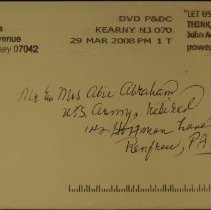 DVD P&DC
KEARNY NJ 070
29 MAR 2008 PM 1 T
"LET US
THINK,
John A
power
venue
sey 07042
Mr & Mrs Abie Abraham
U.S. Army, Retired
142 Hoffman Lane
Renfrew, PA